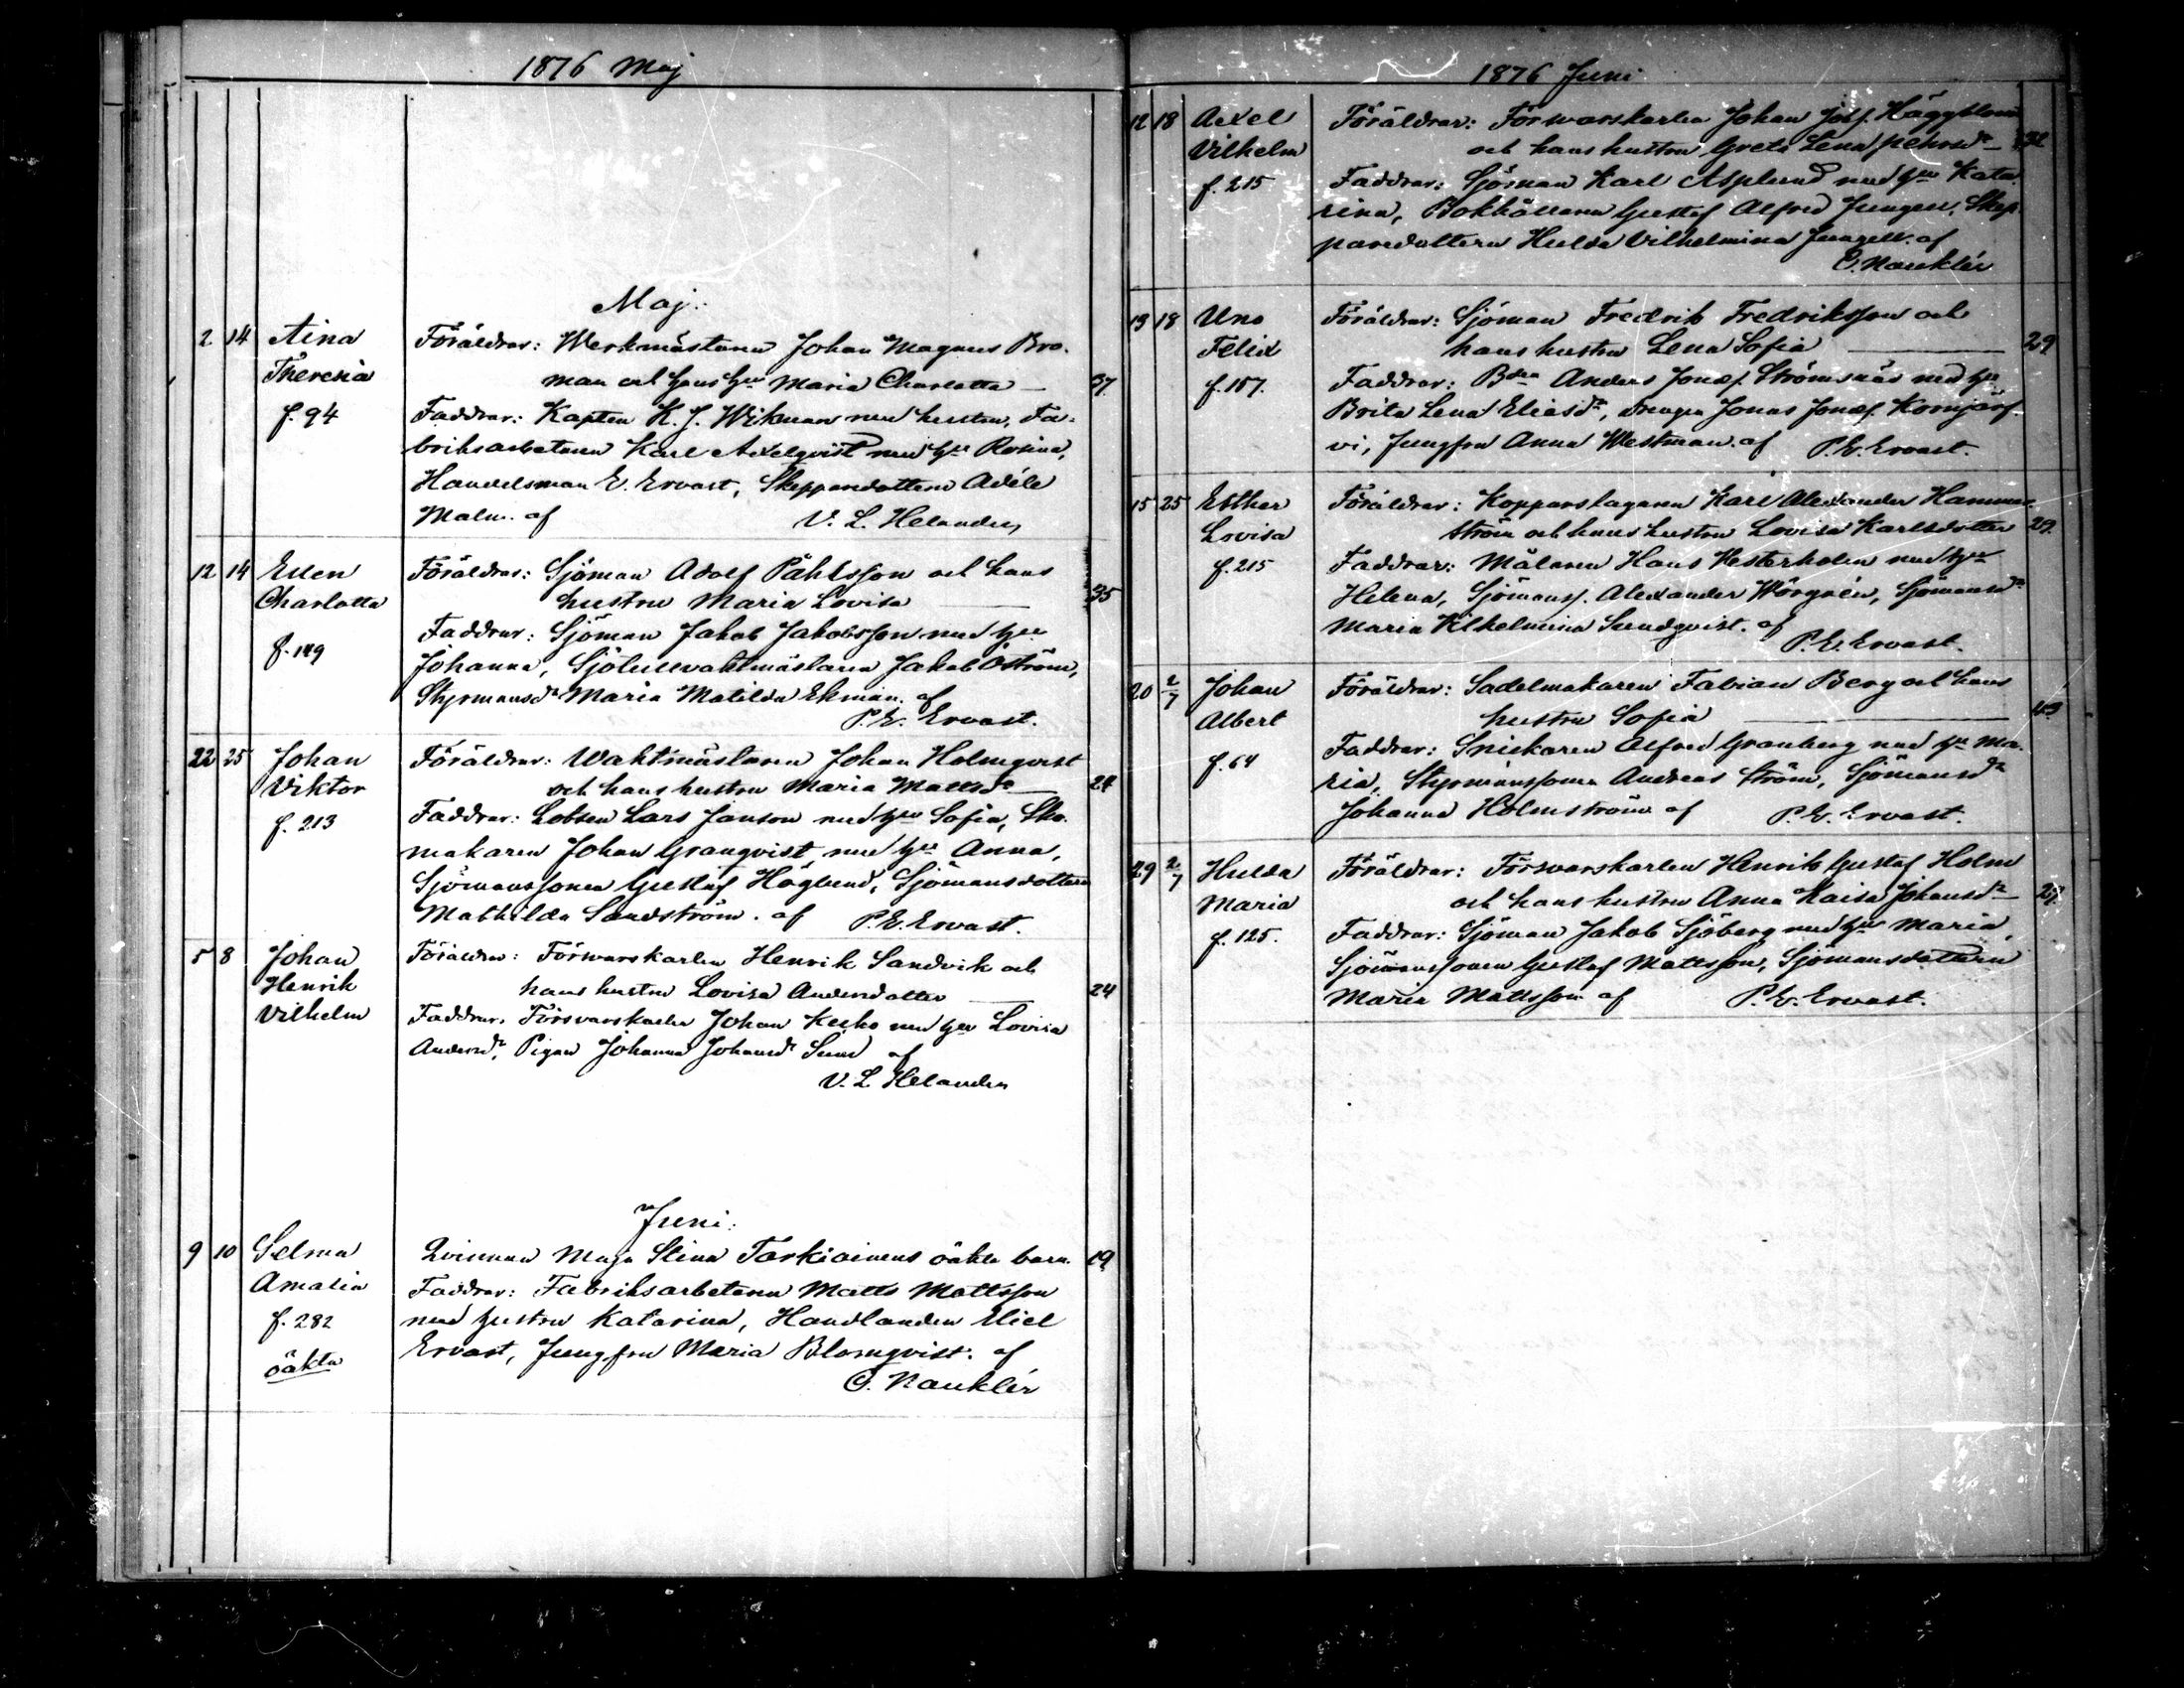 1876 Maj
Maj.
2 14 Aina Föräldrar: Werkmästaren Johan Magnus Bro-
Theresia man och hans hu Maria Charlotta 37
f. 94 Faddrar: Kapten K. J. Wikman med hustru, Fa-
briksarbetaren Karl Axelqvist med hu Rosina,
Handelsman E. Ervast, Skepparedottern Adéle
Malm. af V. L. Helander
12 14 Ellen Föräldrar: Sjöman Adolf Påhlsson och hans
Charlotta hustru Maria Lovisa 35
f. 149 Faddrar: Sjöman Jakob Jakobsson med hu
Johanna, Sjötullvaktmästaren Jakob Öström,
Styrmansdr Maria Matilda Ekman. af
P. E. Ervast.
22 25 Johan Föräldrar: Waktmästaren Johan Holmqvist
Viktor och hans hustru Maria Mattsdr 24
f. 213 Faddrar: Lotsen Lars Janson med hu Sofia, Sko-
makaren Johan Granqvist med hu Anna,
Sjömanssonen Gustaf Höglund, Sjömansdottern
Mathilda Sandström. af P. E. Ervast.
5 8 Johan Föräldrar: Förswarskarlen Henrik Sandvik och
Henrik hans hustru Lovisa Andersdotter 24
Vilhelm Faddrar: Försvarskarlen Johan Keiho med hu Lovisa
Andersdr, Pigan Johanna Johansdr Sund af
V. L. Helander
Juni.
9 10 Selma Qvinnan Maja Stina Tarkiainens oäkta barn. 19
Amalia Faddrar: Fabriksarbetaren Matts Mattsson
f. 282 med hustru Katarina, Handlanden Eliel
oäkta Ervast, Jungfru Maria Blomqvist. af
G. Nauklér
1876 Juni
12 18 Axel Föräldrar: Förswarskarlen Johan Johs. Häggblom
Vilhelm och hans hustru Greta Lena Pehrsdr
f. 215 Faddrar: Sjöman Karl Asplund med hu Kata-
rina, Bokhållaren Gustaf Alfred Jungell, Skep-
paredottern Hulda Vilhelmina Jungell. af
G. Nauklér
13 18 Uno Föräldrar: Sjöman Fredrik Fredriksson och
Felix hans hustru Lena Sofia 29
f. 157. Faddrar: Bden Anders Jonss. Strömsnäs med hu
Brita Lena Eliasdr, Drengen Jonas Jonss. Kornjärf-
vi, Jungfru Anna Westman. af P. E. Ervast.
15 25 Esther Föräldrar: Kopparslagaren Karl Alexander Hammar-
Lovisa ström och hans hustru Lovisa Karlsdotter 29.
f. 215 Faddrar: Målaren Hans Westerholm med hu
Helena, Sjömanss. Alexander Wörgrén, Sjömansdr
Maria Vilhelmina Sundqvist. af
P. E. Ervast.
20 2/7 Johan Föräldrar: Sadelmakaren Fabian Berg och hans
Albert hustru Sofia 43
f. 64 Faddrar: Snickaren Alfred Granberg med hu Ma-
ria, Styrmanssonen Andreas Ström, Sjömansdr
Johanna Holmström af P. E. Ervast.
29 2/7 Hulda Föräldrar: Försvarskarlen Henrik Gustaf Holm
Maria och hans hustru Anna Kaisa Johansdr 27.
f. 125. Faddrar: Sjöman Jakob Sjöberg med hu Maria,
Sjömanssonen Gustaf Mattsson, Sjömansdottern
Maria Mattsson af P. E. Ervast.